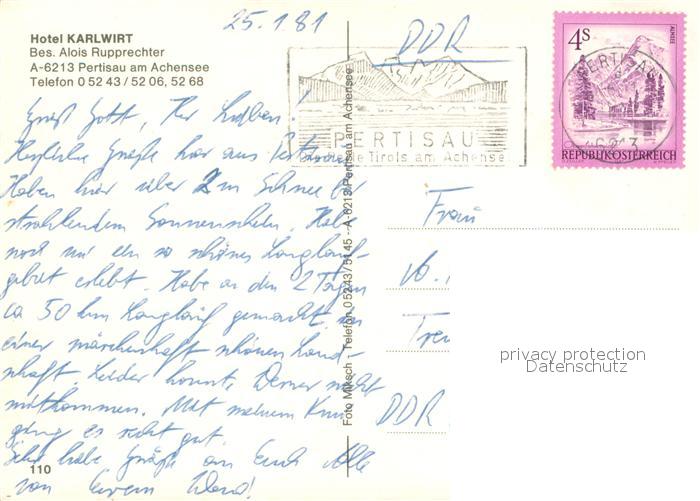 25.1.81
Hotel KARLWIRT
Bes. Alois Rupprechter
A-6213 Pertisau am Achensee
Telefon 0 52 43 / 52 06, 52 68
DDR
4S
ALMSEE
REPUBLIK ÖSTERREICH
PERTISAU
6213
PERTISAU
Tirols am Achensee
Grüß Gott, Ihr Lieben!
Herzliche Grüße hier aus Pertisau
Haben hier über 2 m Schnee bei
strahlendem Sonnenschein. Habe
noch nie ein so schönes Langlauf-
gebiet erlebt. Habe an den 2 Tagen
ca 50 km Langlauf gemacht, in
einer märchenhaft schönen Land-
schaft. Leider konnte Werner nicht
mitkommen. Mit meinem Knie
ging es recht gut.
Sehr liebe Grüße an Euch Alle
von Eurem
110
Foto Miksch - Telefon 05243/5145 - A-6213 Pertisau am Achensee
Frau
DDR
privacy protection
Datenschutz